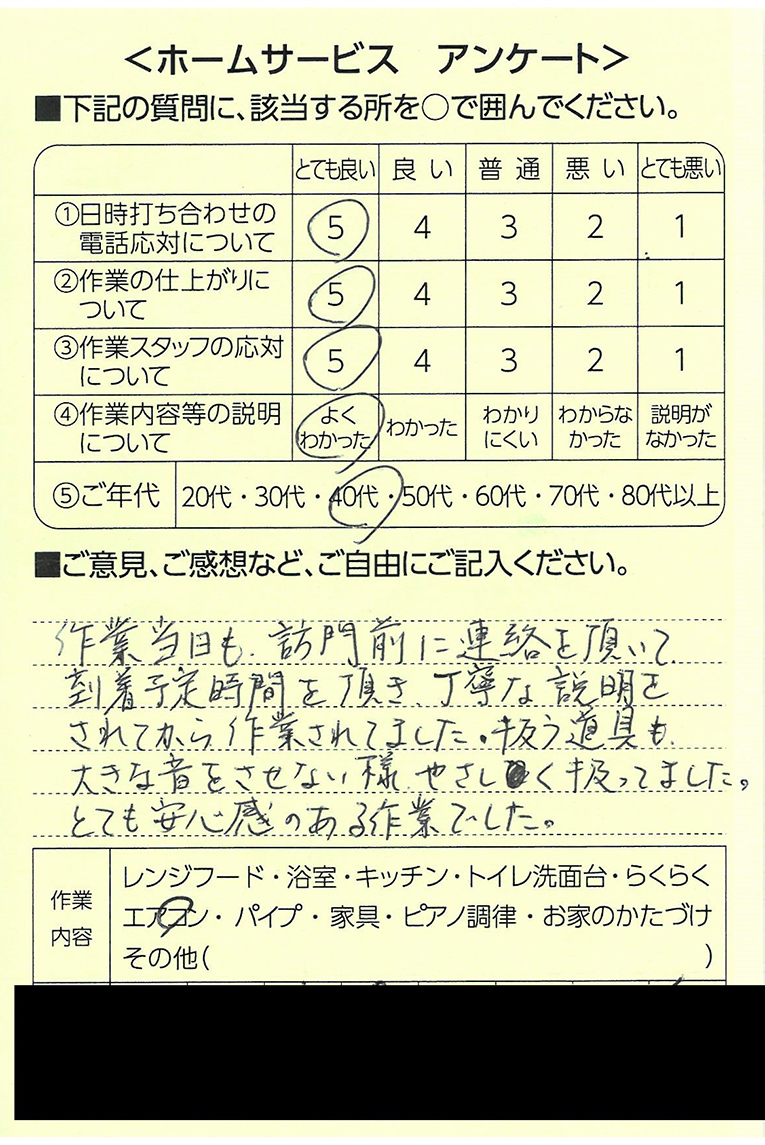 <ホームサービス アンケート>
■下記の質問に、該当する所を○で囲んでください。
とても良い 良い 普通 悪い とても悪い
①日時打ち合わせの
電話応対について 5 4 3 2 1
②作業の仕上がりに
ついて 5 4 3 2 1
③作業スタッフの応対
について 5 4 3 2 1
④作業内容等の説明
について よくわかった わかった わかりにくい わからなかった 説明がなかった
⑤ご年代 20代・30代・40代・50代・60代・70代・80代以上
■ご意見、ご感想など、ご自由にご記入ください。
作業当日も、訪門前に連絡を頂いて、
到着予定時間を頂き、丁寧な説明を
されてから作業されてました。扱う道具も、
大きな音をさせない様やさしく扱ってました。
とても安心感のある作業でした。
作業内容
レンジフード・浴室・キッチン・トイレ洗面台・らくらく
エアコン・パイプ・家具・ピアノ調律・お家のかたづけ
その他( )